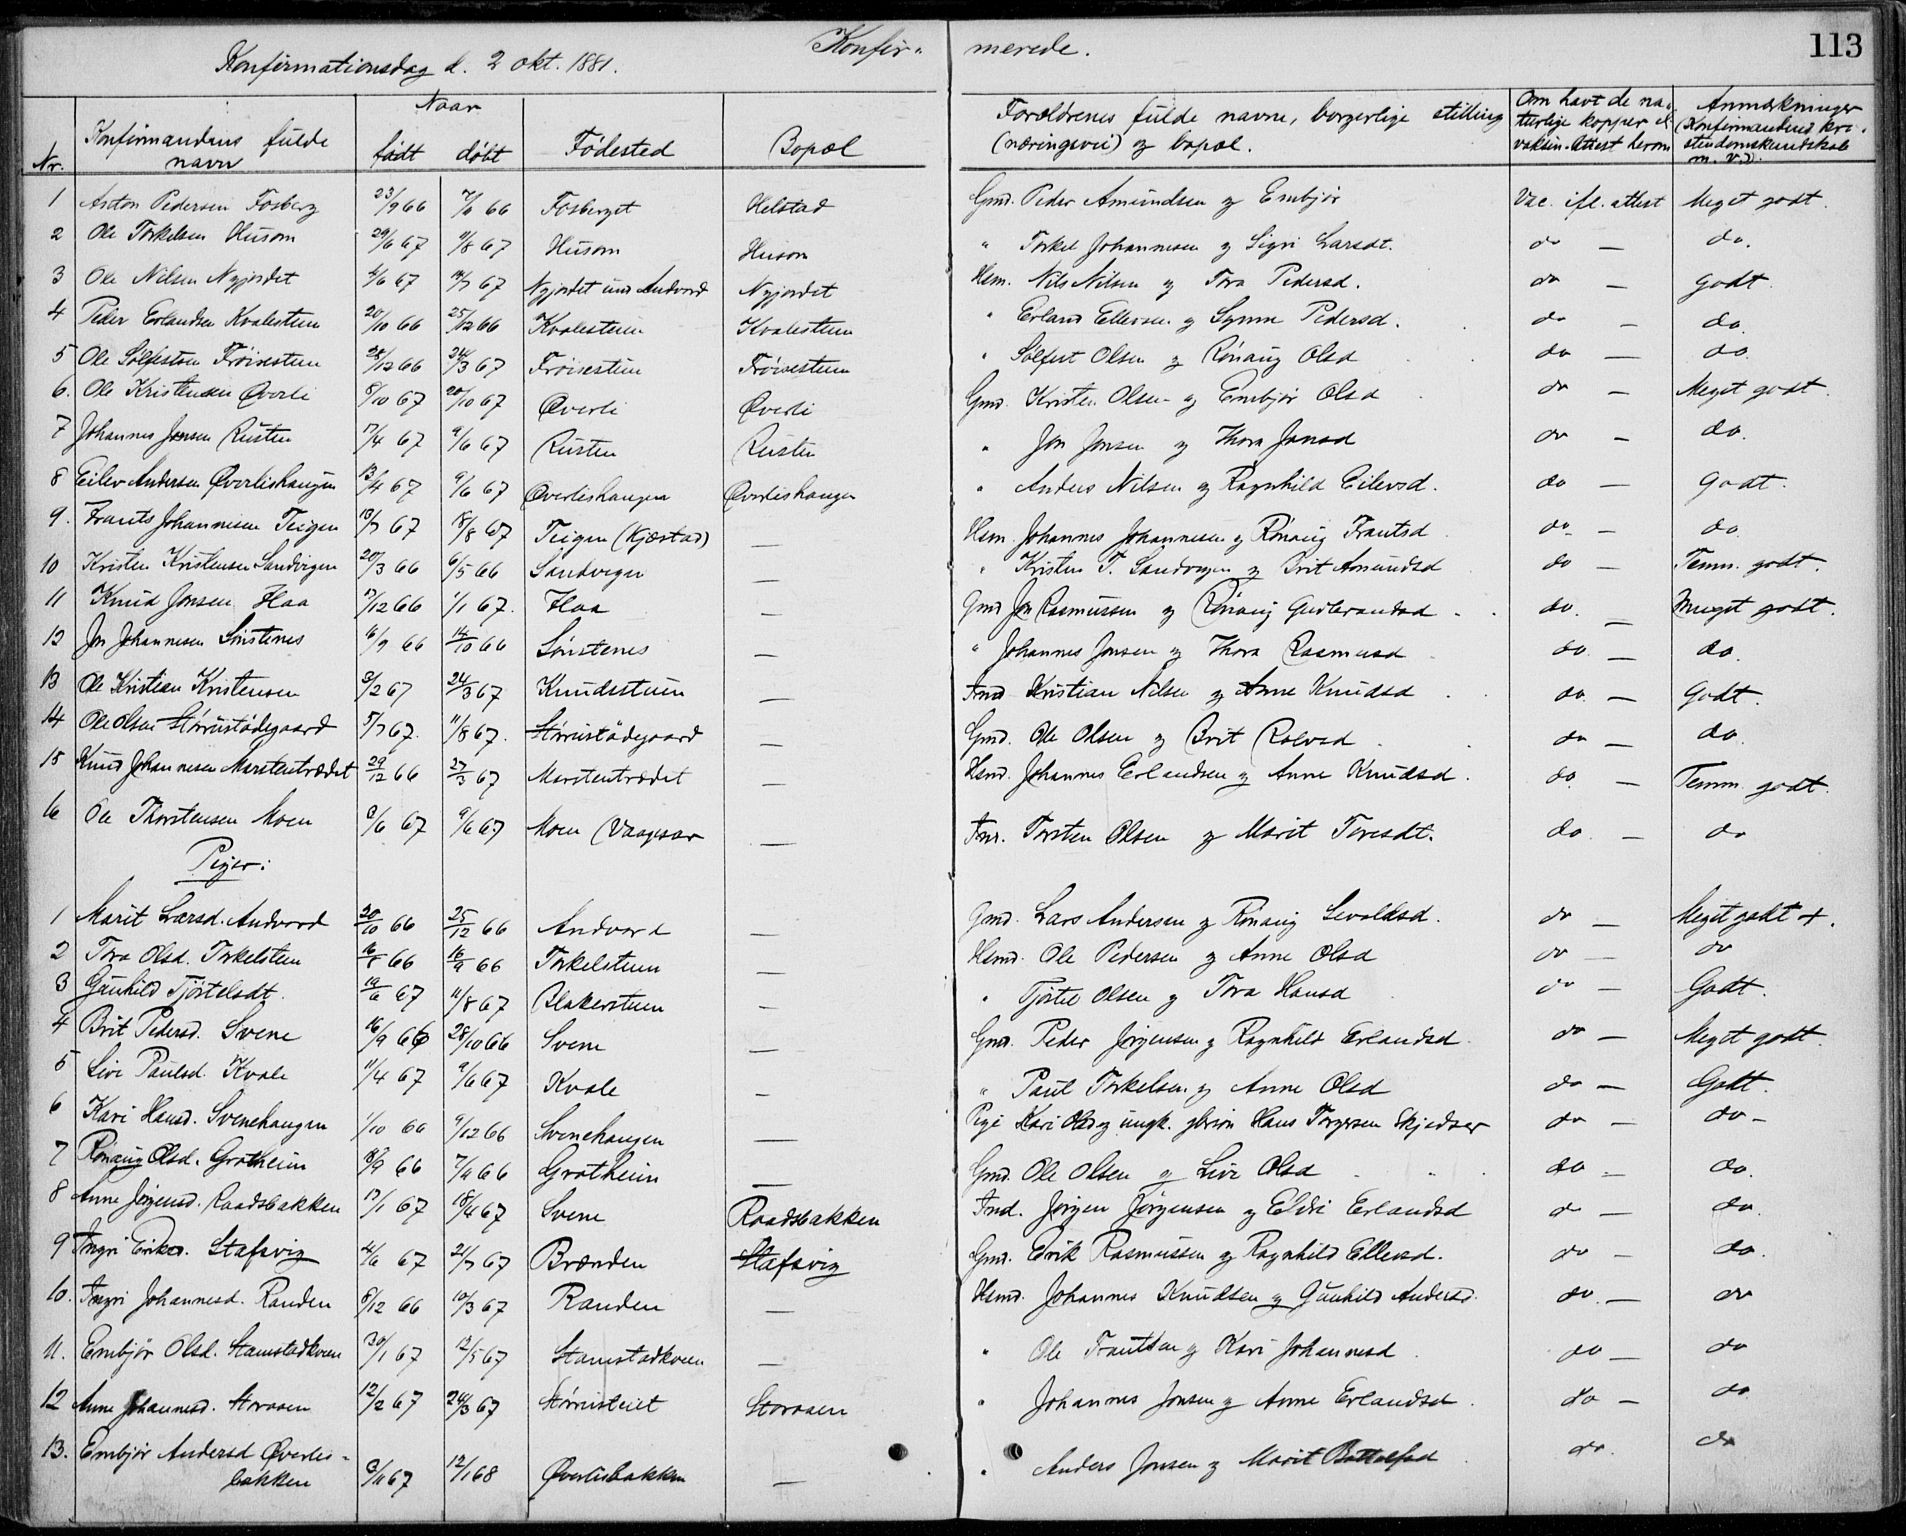 Konfir- merede. 113
Konfirmationsdag d. 2 okt. 1881.
Nr. Konfirmandens fulde navn Naar født døbt Fødested Bopæl Forældrenes fulde navne, borgerlige stilling (næringsvei) og bopæl. Om havt de naturlige kopper el. vaksin. Attest herom Anmærkninger (Konfirmandens kristendomskundskab m. v.).
1 Anton Pedersen Fosberg 23/9 66 66 Fosberget Helstad Gmd. Peder Amundsen og Embjør Vac. ifl. attest Meget godt.
2 Ole Torkelsen Husom 29/6 67 11/8 67 Husom Husom " Torkel Johannesen og Sigri Larsdt. do — do.
3 Ole Nilsen Nyjordet 4/6 67 14/7 67 Nyjordet und Andvord Nyjordet Hsm. Nils Nilsen og Tora Pedersd. do — godt.
4 Peder Erlandsen Kvalestuen 20/10 66 25/12 66 Kvalestuen Kvalestuen " Erland Ellevsen og Synne Pedersd. do — do.
5 Ole Solfestsen Frøisestuen 28/12 66 24/3 67 Frøisestuen Frøisestuen " Solfest Olsen og Rønaug Olsd do — do.
6. Ole Kristensen Øverli 8/10 67 20/10 67 Øverli Øverli Gmd. Kristen Olsen og Embjør Olsd do — Meget godt.
7 Johannes Jonsen Rusten 17/4 67 9/6 67 Rusten Rusten " Jon Jonsen og Thora Jonsd do — do.
8 Eilev Andersen Øverlishaugen 13/4 67 9/6 67 Øverlishaugen Øverlishaugen " Anders Nilsen og Ragnhild Eilevsd. do — godt.
9. Frants Johannesen Teigen 13/7 67 18/8 67 Teigen (Kjæstad) — Hsm. Johannes Johannesen og Rønaug Frantsd do — do.
10 Kristen Kristensen Sandvigen 20/3 66 6/5 66 Sandvigen — " Kristen T. Sandvigen og Brit Amundsd do — Temm. godt.
11 Knud Jonsen Haa 17/12 66 1/1 67. Haa — Gmd Jon Rasmussen og Rønaug Gudbrandsd do. — Meget godt.
12 Jon Johannesen Sønstenes 16/9 66 14/10 66 Sønstenes — " Johannes Jonsen og Thora Rasmusd do. — do.
13 Ole Kristian Kristensen 3/2 67 24/3 67 Knudsstuen — Ind. Kristian Nilsen og Anne Knudsd do. — Godt.
14 Ole Olsen Størrustødegaard 5/7 67. 11/8 67. Størrustødegaard — Gmd. Ole Olsen og Brit Rolvsd do — do.
15 Knud Johannesen Marstentrædet 29/12 66 27/3 67 Marstentrædet — Hsmd. Johannes Erlandsen og Anne Knudsd. do. — Temm godt.
16 Ole Thorstensen Moen 2/6 67 9/6 67 Moen (Vaagaar — Inr. Torsten Olsen og Marit Toresdt. do. — do
Piger:
1 Marit Larsd. Andvord 20/10 66 25/12 66 Andvord — Gmd. Lars Andersen og Rønaug Sevaldsd. do — Meget godt +.
2 Tora Olsd. Torkelstuen 16/8 66 16/9 66 Torkelstuen — Hsmd. Ole Pedersen og Anne Olsd do — do
3 Gunhild Tjøstelsdt. 19/6 67 11/8 67 Blakerstuen — " Tjøstel Olsen og Tora Hansd do — Godt.
4 Brit Pedersd. Svene 16/9 66 28/10 66 Svene — Gmd. Peder Jørgensen og Ragnhild Erlandsd do — Meget godt.
5 Live Paulsd. Kvale 11/4 67 9/6 67 Kvale — " Paul Torkelsen og Anne Olsd do — Godt.
6 Kari Hansd. Svenehaugen 1/10 66 9/12 66 Svenehaugen — Pige Kari Olsd og ungk. Hans Torgersen Skjedsar do — do —
7 Rønaug Olsd. Grotheim 18/9 66 7/11 66 Grotheim — Gmd. Ole Olsen og Live Olsd do — do.
8 Anne Jørgensd. Raadsbakken 17/1 67 18/4 67 Svene Raadsbakken Ind. Jørgen Jørgensen og Eldri Erlandsd do — do.
9 Ingri Eriksd. Stafsvig 4/6 67 21/7 67 Brænden Stafsvig Gmd. Erik Rasmussen og Ragnhild Ellevsd. do — do.
10. Ingri Johannesd. Randen 8/12 66 10/3 67 Randen — Hsmd. Johannes Knudsen og Gunhild Andersd. do. — do
11. Embjør Olsd. Stamstadkveen 30/1 67 12/5 67 Stamstadkveen — " Ole Frantsen og Kari Johannesd do — do
12 Anne Johannesd. Storaaen 12/2 67 24/3 67 Størrusteiet Storaaen " Johannes Jonsen og Anne Erlandsd. do — do
13. Embjør Andersd Øverlis-
bakken 2/11 67 12/1 68 Øverlisbakken — " Anders Jonsen og Marit Bottolfsd do. do